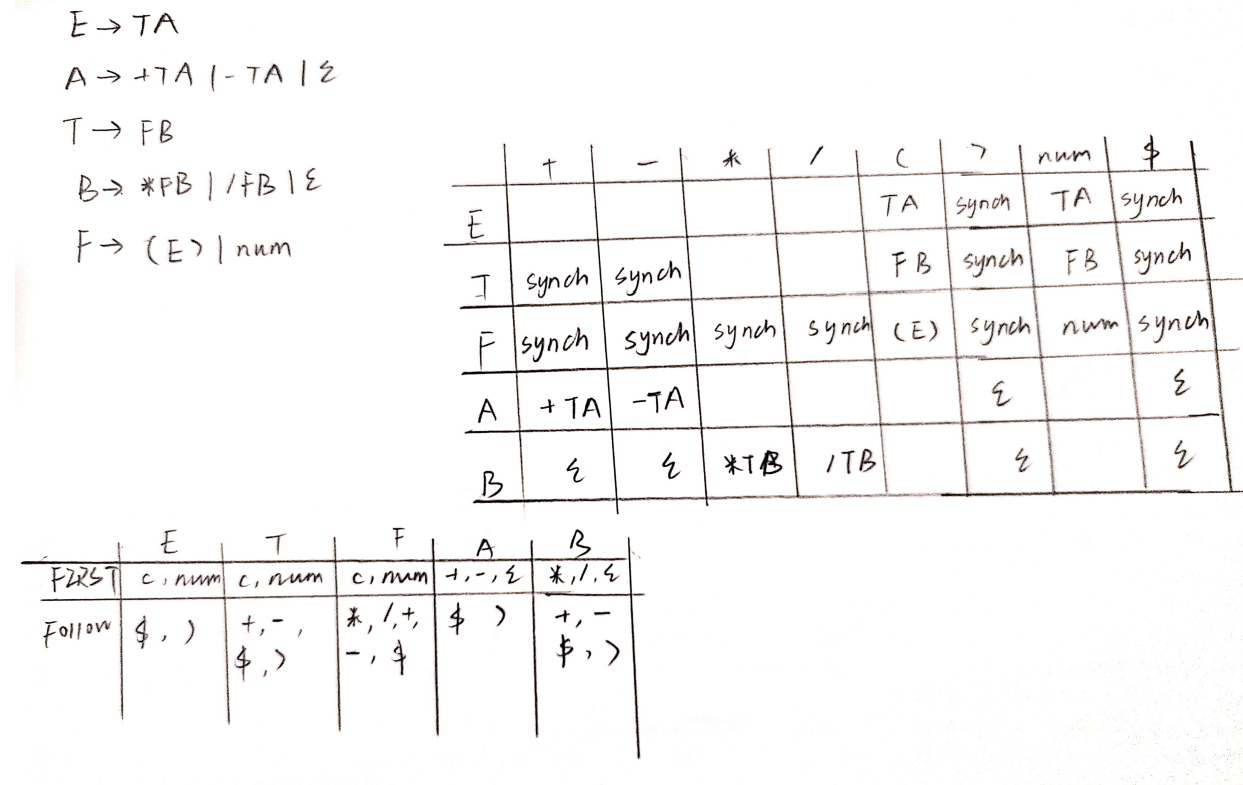 E → TA
A → +TA | - TA | ε
T → FB
B → *FB | /FB | ε
F → (E) | num
+ - * / ( ) num $
E TA synch TA synch
T synch synch FB synch FB synch
F synch synch synch synch (E) synch num synch
A +TA -TA ε ε
B ε ε *TB /TB ε ε
E T F A B
FIRST (, num (, num (, num +, -, ε *, /, ε
Follow $, ) +, -, $, ) *, /, +, -, $ $ ) +, - $, )